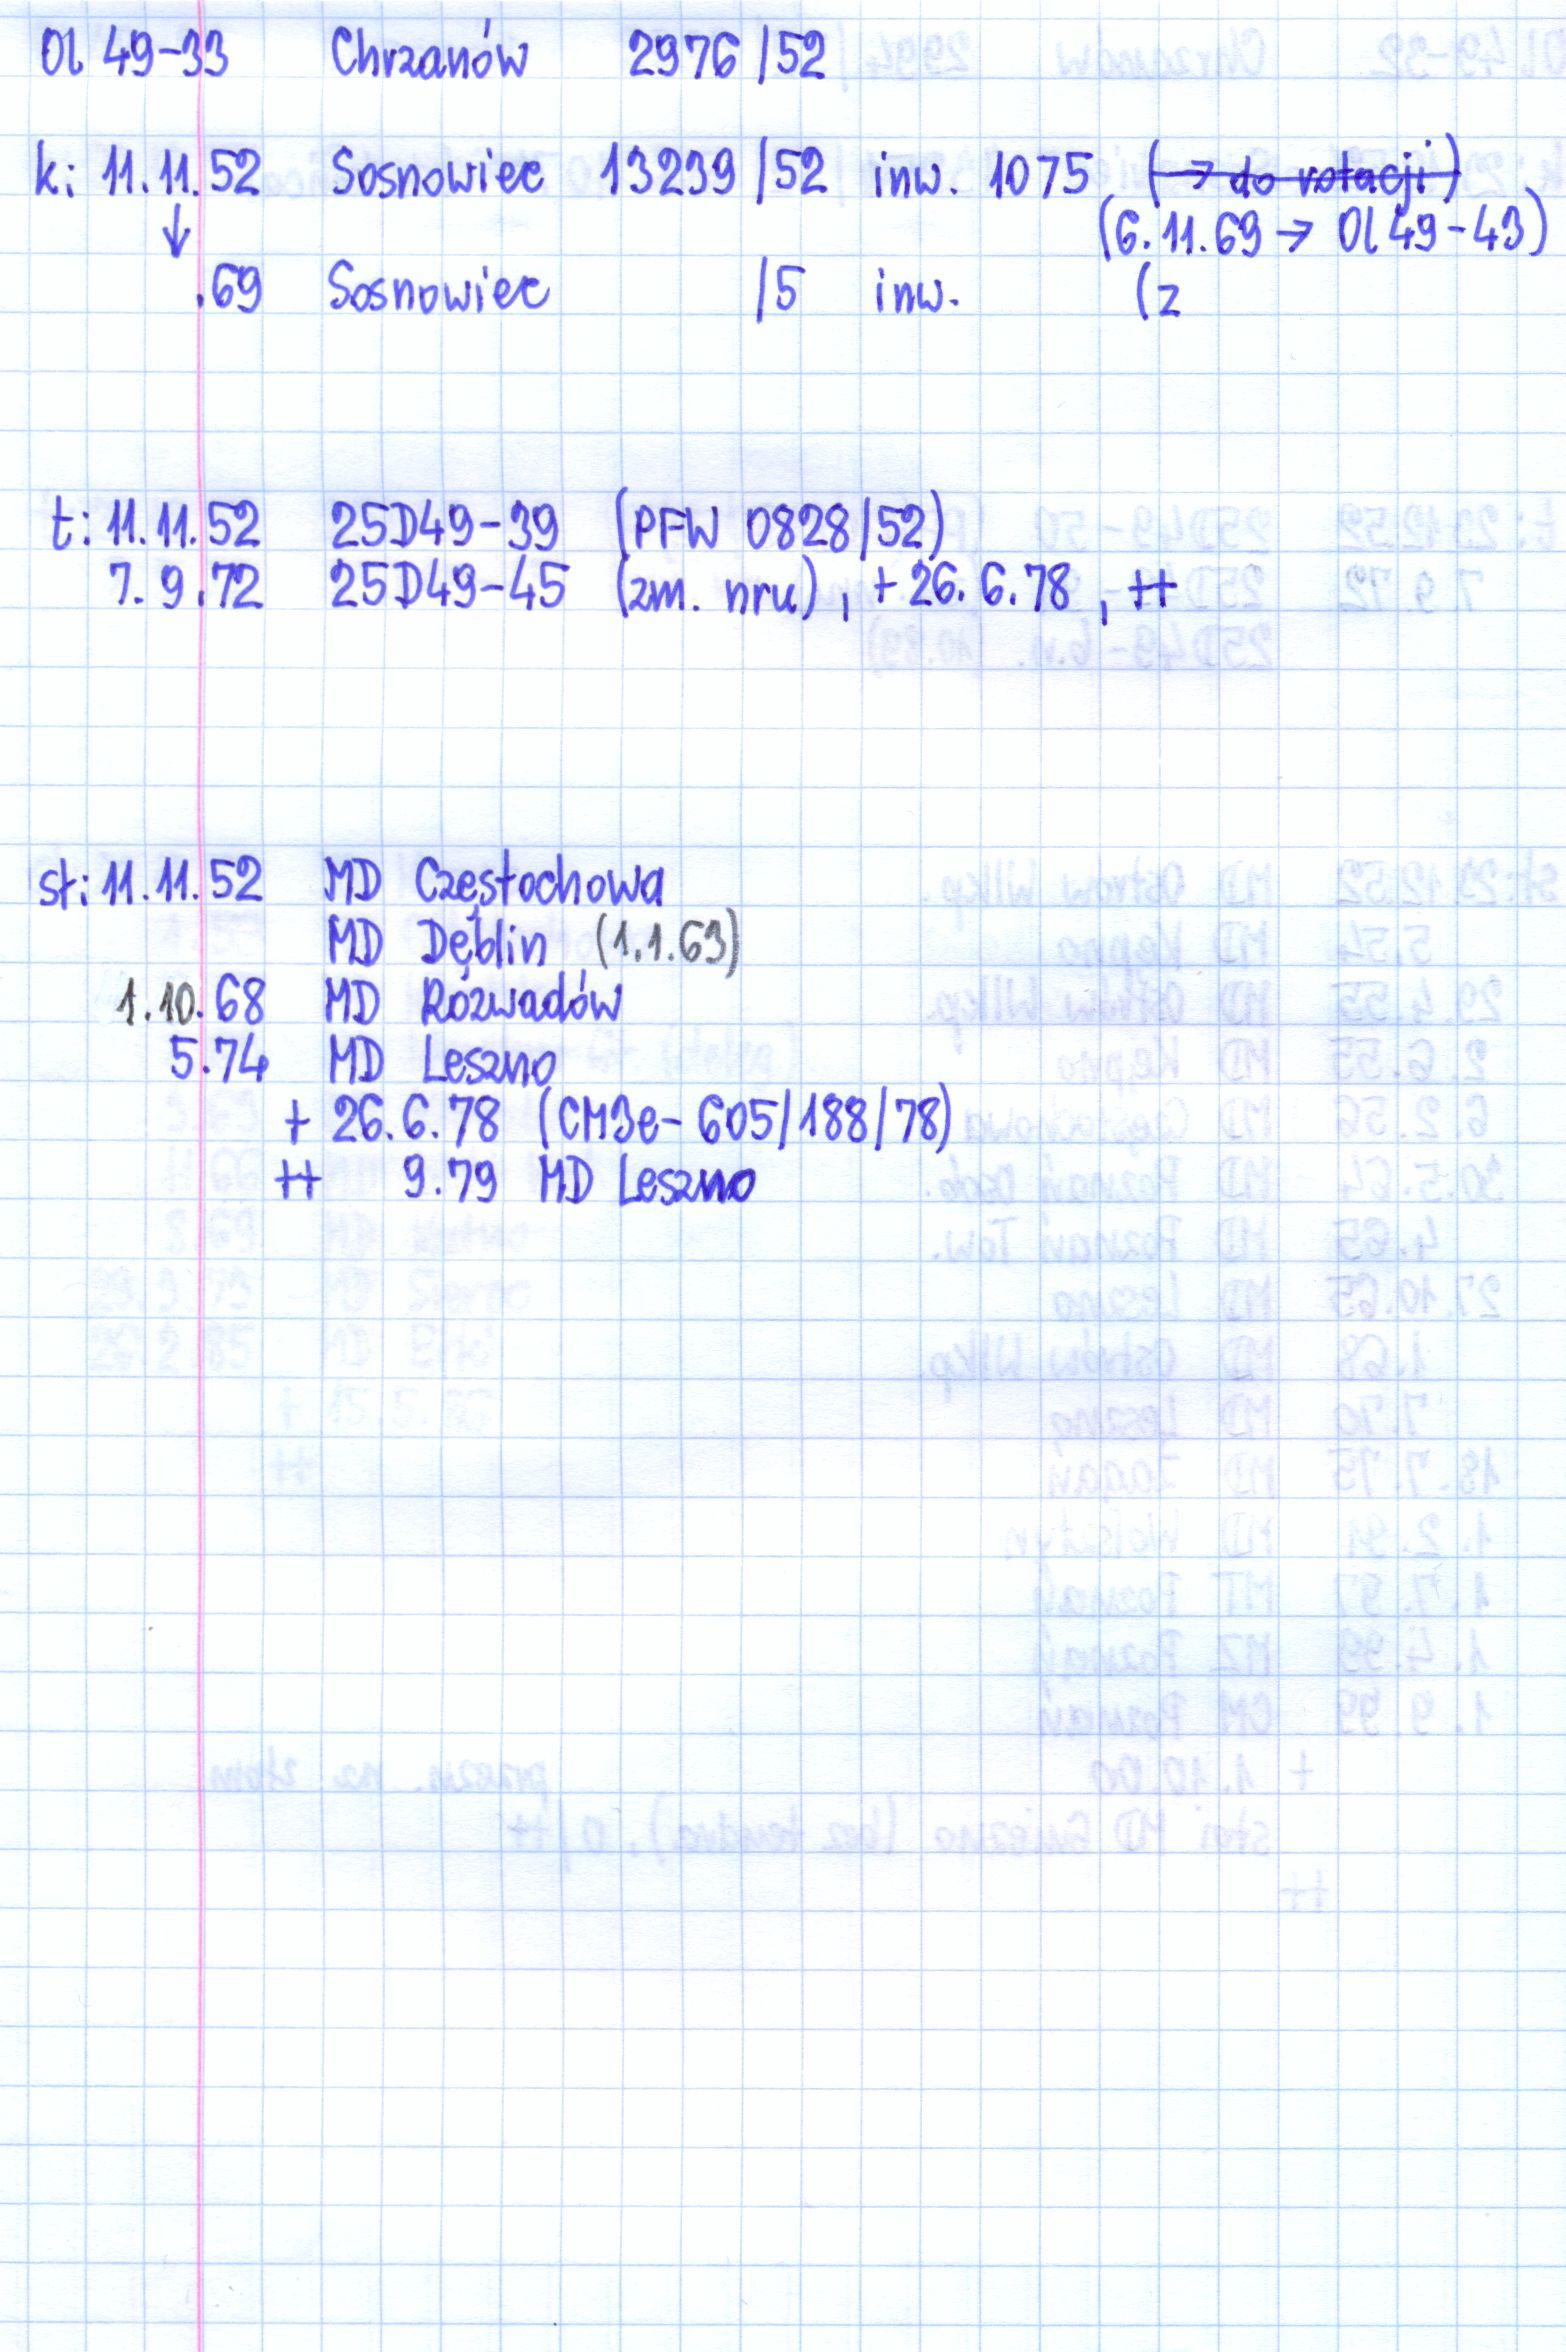 Ol 49-33 Chrzanów 2976 /52
k: 11.11.52 Sosnowiec 13239 /52 inw. 1075 (→ do rotacji)
↓ (6.11.69 → Ol 49-43)
.69 Sosnowiec /5 inw. (z
t: 11.11.52 25D49-39 (PFW 0828/52)
7.9.72 25D49-45 (zm. nru), + 26.6.78, ++
st: 11.11.52 MD Częstochowa
MD Dęblin (1.1.63)
1.10.68 MD Rozwadów
5.74 MD Leszno
+ 26.6.78 (CM3e-605/188/78)
++ 9.79 MD Leszno